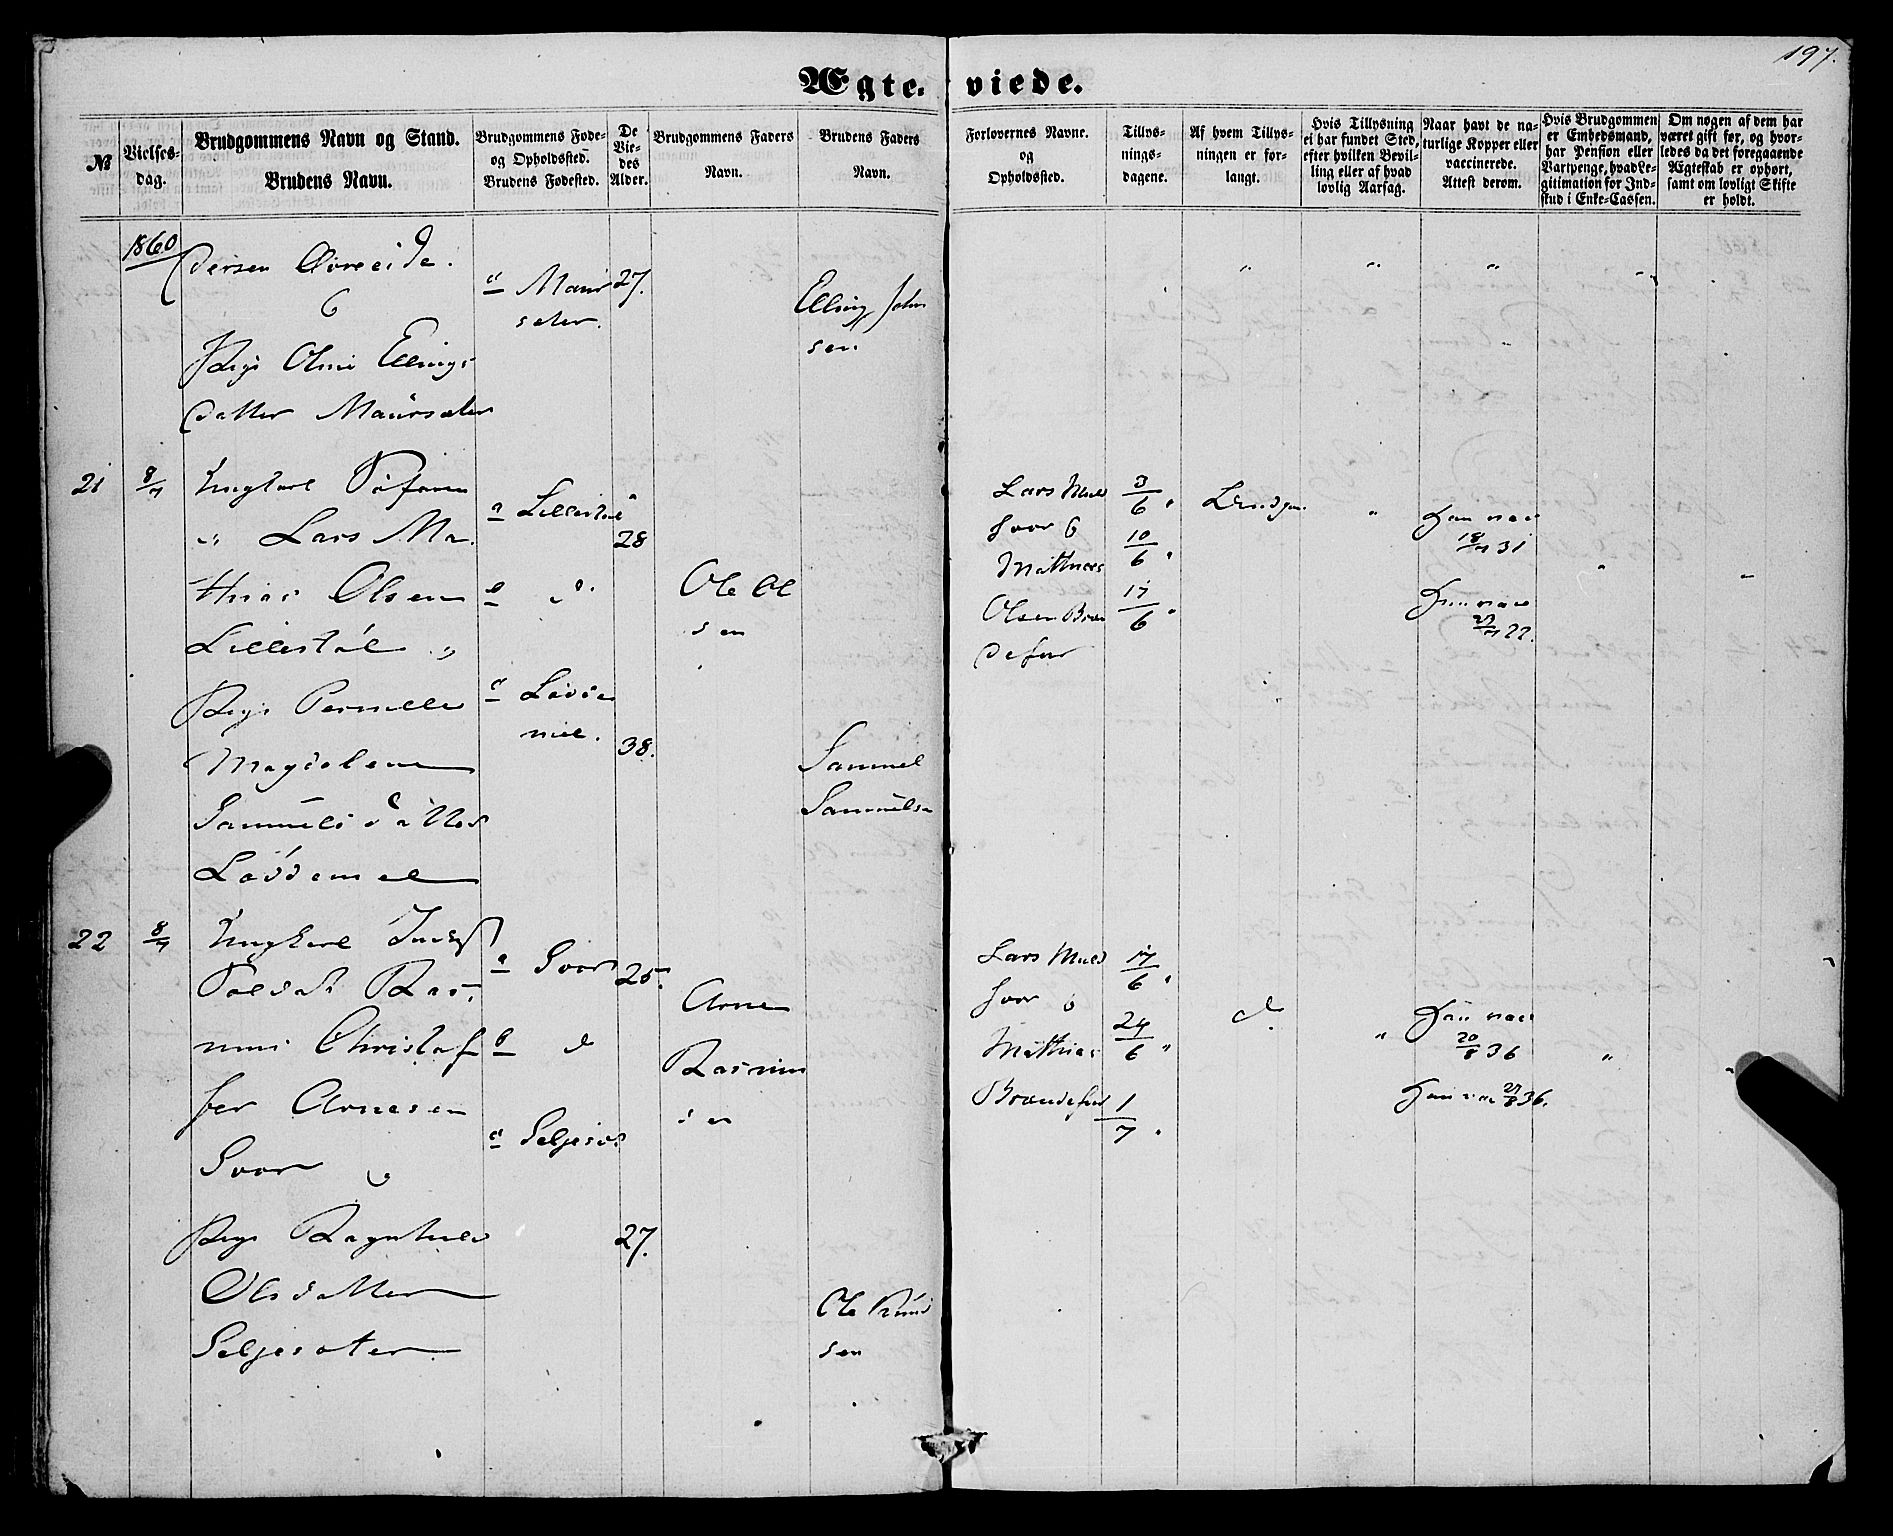 197.
Ægteviede.
№
Vielses-
dag.
Brudgommens Navn og Stand.
Brudens Navn.
Brudgommens Føde-
og Opholdssted.
Brudens Fødested.
De
Vie-
des
Alder.
Brudgommens Faders
Navn.
Brudens Faders
Navn.
Forlovernes Navne.
og
Opholdssted.
Tillys-
nings-
dagene.
Af hvem Tillys-
ningen er for-
langt.
Hvis Tillysning
ei har fundet Sted,
efter hvilken Bevil-
ling eller af hvad
lovlig Aarsag.
Naar havt de na-
turlige Kopper eller
vaccinerede.
Attest derom.
Hvis Brudgommen
er Embedsmand,
har Pension eller
Vartpenge, hvad Le-
gitimation for Ind-
skud i Enke-Cassen.
Om nogen af dem har
været gift før, og hvor-
ledes da det foregaaende
Ægteskab er ophørt,
samt om lovligt Skifte
er holdt.
1860
dersen Øvreeide.
&
Pige Oline Ellings
datter Maursæter
c Maur
sæter.
27.
Elling John
sen
21
8/7
Ungkarl
" Lars Ma.
thias Olsen
Lillestøl "
Pige Pernille
Magdalena
Samuelsdatter
Løddemel
a Lillestøl
b d
c Lødde
mel.
28
38.
Ole Ol
sen
Samuel
Samuels
Lars Muld
svor &
Mathias
Olsen Bran
defur
3/6 "
10/6 "
17/6 "
Brudgom.
"
Han vac
18/7 31
Hun vac
27/7 22.
"
"
22
8/7
Ungkarl
Soldat Ras.
mus Christof
fer Arnesen
Svor &
Pige Ragnhild
Olsdatter
Seljesæter
a Svor
b d
c Seljesæt
25.
27.
Arne
Rasmus
sen
Ole Knud
sen
Lars Muld
svor &
Mathias
Brandefur
17/6 "
24/6 "
1/7 "
d.
"
Han vac
20/8 36
Hun vac 27/8 36.
"